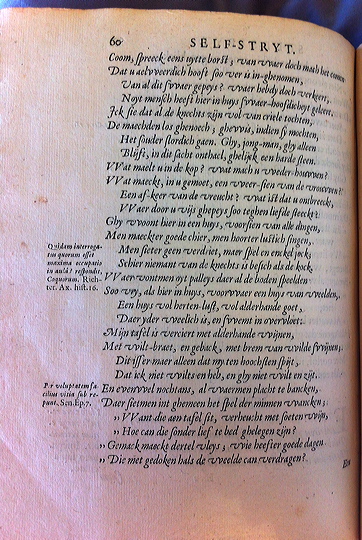 60
SELF-STRYT.
Coom, spreeck eens uytte borst; van vvaer doch mach het comen
Dat u aelvveerdich hooft soo ver is in-ghenomen,
Van al dit svvaer gepeys? vvaer hebdy doch verkeert,
Noyt mensch heeft hier in huys svvaer-hoofdicheyt geleert.
Ick sie dat al de knechts zijn vol van criele tochten,
De maechden los ghenoech; ghevvis, indien sy mochten,
Het souder slordich gaen. Ghy, jong-man, ghy alleen
Blijft, in dit sacht onthael, ghelijck een harde steen.
VVat maelt u in de kop? vvat mach u vveder-houvven?
VVat maeckt, in u gemoet, een vveer-sien van de vrouvven?
Een af-keer van de vreucht? vvat ist dat u onbreeckt,
VVaer door u vvijs ghepeys soo teghen liefde steeckt?
Ghy vvoont hier in een huys, voorsien van alle dingen,
Men maeckter goede chier, men hoorter lustich singen,
Men sieter geen verdriet, maer spel en enckel jock,
Schier niemant van de knechts is besich als de kock.
VVaer vvontmen oyt palleys daer al de boden speelden
Soo vry, als hier in huys, voorvvaer een huys van vveelden,
Een huys vol herten-lust, vol alderhande goet,
Daer yder vveelich is, en svvemt in overvloet.
Mijn tafel is verciert met alderhande vvijnen,
Met vvilt-braet, en geback, met brem van vvilde svvijnen;
Dit isser maer alleen dat my ten hoochsten spijt,
Dat ick niet vvilts en heb, en ghy niet vvilt en zijt.
En evenvvel nochtans, al vvaermen placht te bancken,
Daer sietmen int ghemeen het spel der minnen vvancken;
„ VVant die aen tafel sit, verheucht met soeten vvijn,
„ Hoe can die sonder lief te bed ghelegen zijn?
„ Gemack maeckt dertel vleys; vvie heefter goede dagen
„ Die met gedoken hals de vveelde can verdragen?
Quidam interroga-
tus quorum esset
maxima occupatio
in aula? respondit,
Coquorum. Rich-
ter. Ax. hist. 16.
Per voluptatem fa
cilius vitia sub re-
punt. Sen. Ep. 7.